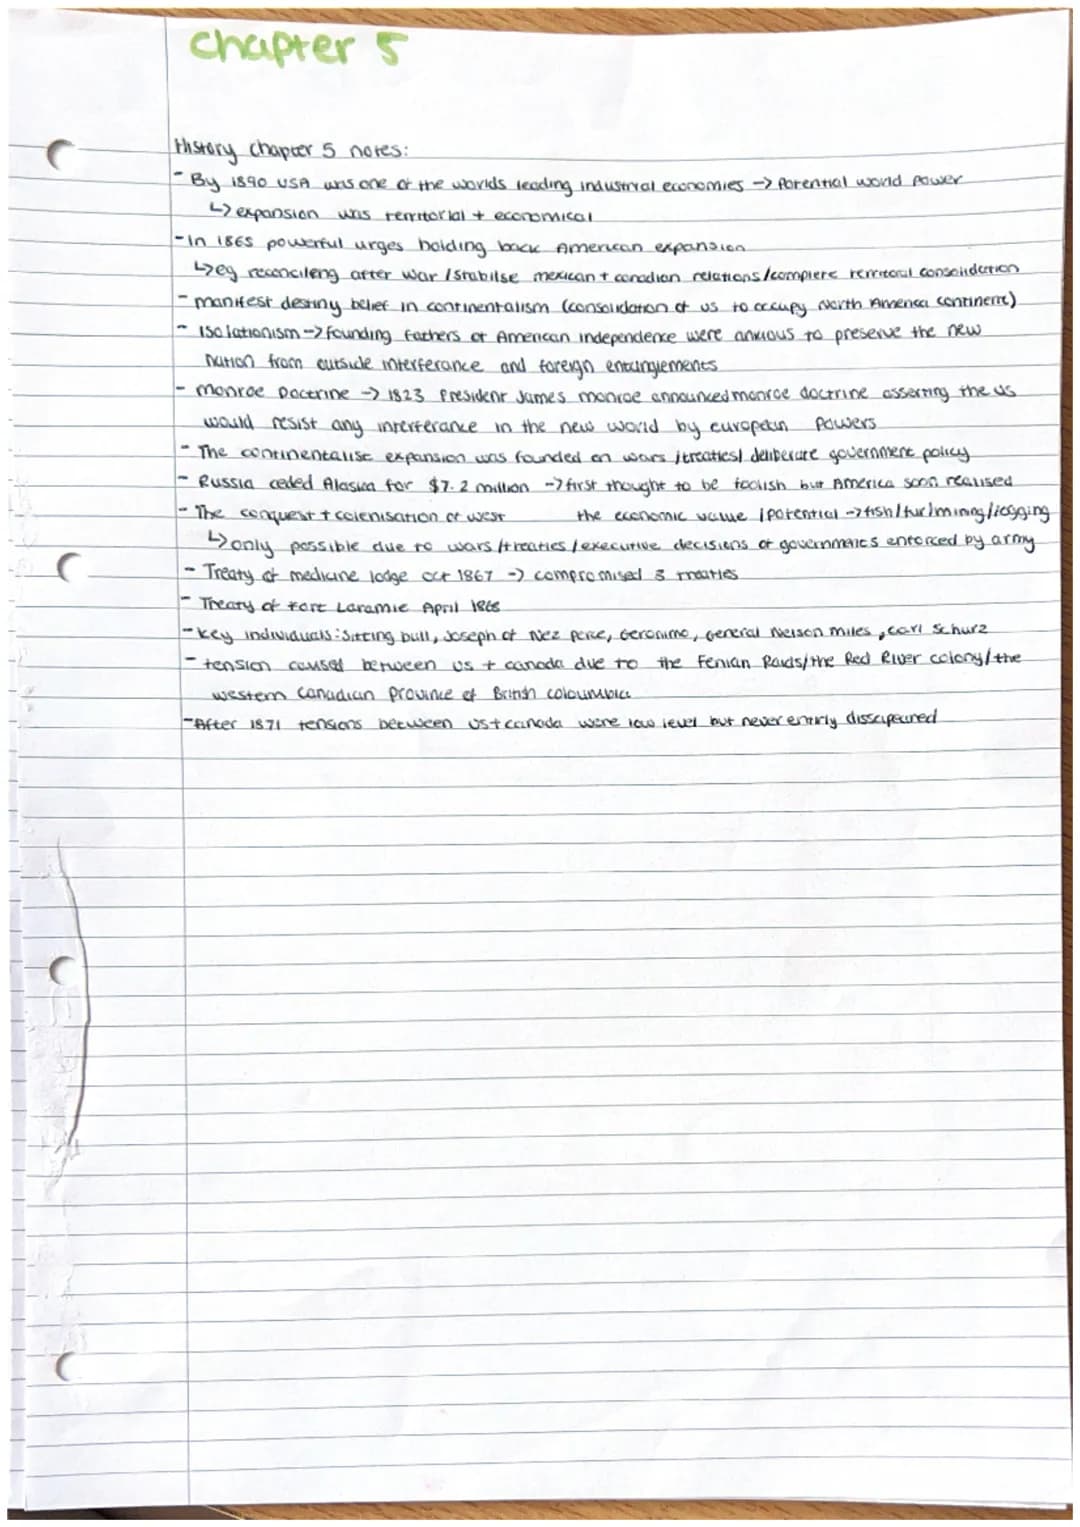 chapter 5
History chapter 5 notes:
- By 1890 USA was one of the worlds leading industrial economies -> Potential world power
↳ expansion was territorial + economical
- In 1865 powerful urges holding back American expansion
↳ eg reconcileng after war / stabilse mexican + canadian relations / complete territoral consolidation
- manifest destiny belief in continentalism (consolidation of US to occupy North America continent)
- Isolationism -> founding fathers of American independence were anxious to preserve the new
nation from outside interferance and foreign entanglements
- Monroe Doctrine -> 1823 President James monroe announced monroe doctrine asserting the US
would resist any interferance in the new world by european Powers
- The continentalist expansion was founded on wars / treaties / deliberate government policy
- Russia ceded Alaska for $7.2 million -> first thought to be foolish but America soon realised
the economic value / potential -> fish / fur / mining / logging
- The conquest + colonisation of west
↳ only possible due to wars / treaties / executive decisions of governments enforced by army
- Treaty of medicine lodge oct 1867 -> compromised 3 treaties
- Treaty of Fort Laramie April 1868
- Key individuals: Sitting bull, Joseph of Nez perce, Geronimo, General Nelson miles, carl Schurz
- tension caused between US + canada due to the Fenian Raids / the Red River colony / the
western Canadian Province of British coloumbia
- After 1871 tensions between US + canada were low level but never entirly dissapeared